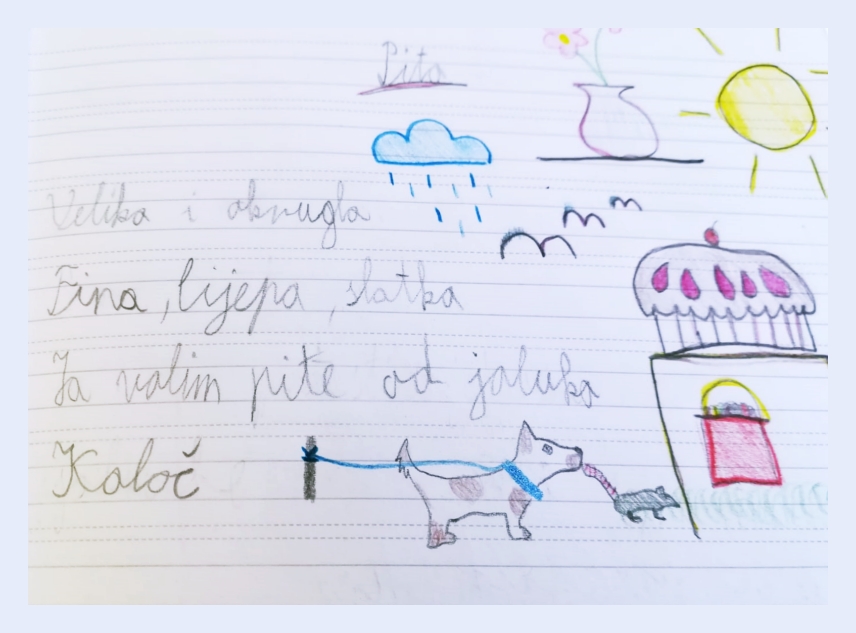 Pita
Velika i okrugla
Fina, lijepa, slatka
Ja volim pite od jabuka
Koloč